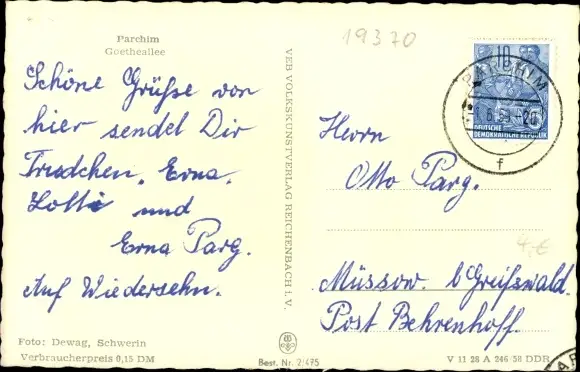 Parchim
Goetheallee
Schöne Grüße von
hier sendet Dir
Trudchen, Erna,
Lotti und
Erna Parg.
Auf Wiedersehn.
Foto: Dewag, Schwerin
Verbraucherpreis 0,15 DM
VEB VOLKSKUNSTVERLAG REICHENBACH i. V.
Best. Nr. 2/475
19370
10
DEUTSCHE
DEMOKRATISCHE REPUBLIK
PARCHIM
f
Herrn
Otto Parg.
4,€
Müssow. b Greifswald.
Post Behrenhoff.
V 11 28 A 246/58 DDR